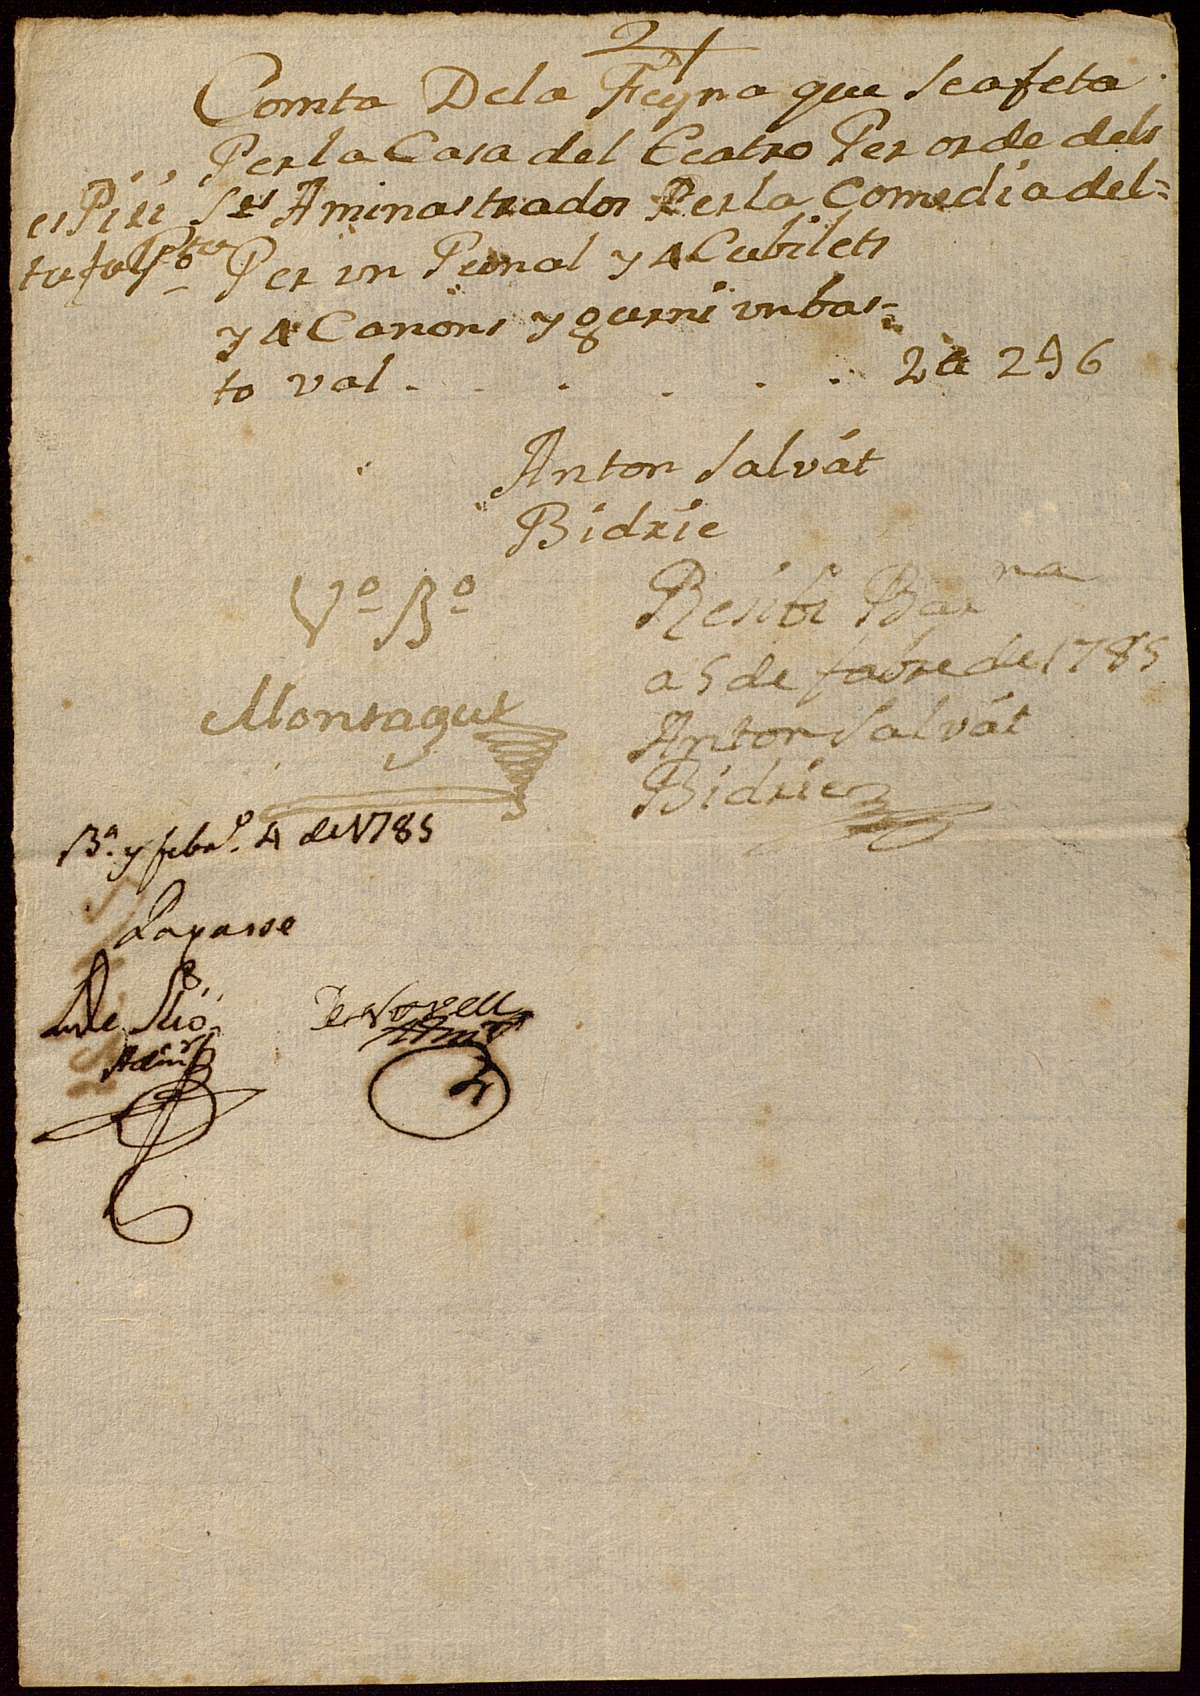 21
Comta Dela Feyna que Seafeta
Perla Casa del Teatro Per orde dels
Srs Aminastrador Perla Comedia del=
es Piri
Per un Punal y 4 Cubilets
y 4 Canons y guarni vn bas=
to val . . . . . 2 ₶ 2 ß 6
Anton Salvát
Bidrie
Vo Bo
Montagut
Resibi Barna
a 5 de fabre de 1785
Anton Salvát
Bidrie
Ba. y febro. 4 de 1785
Pagasse
De Novell